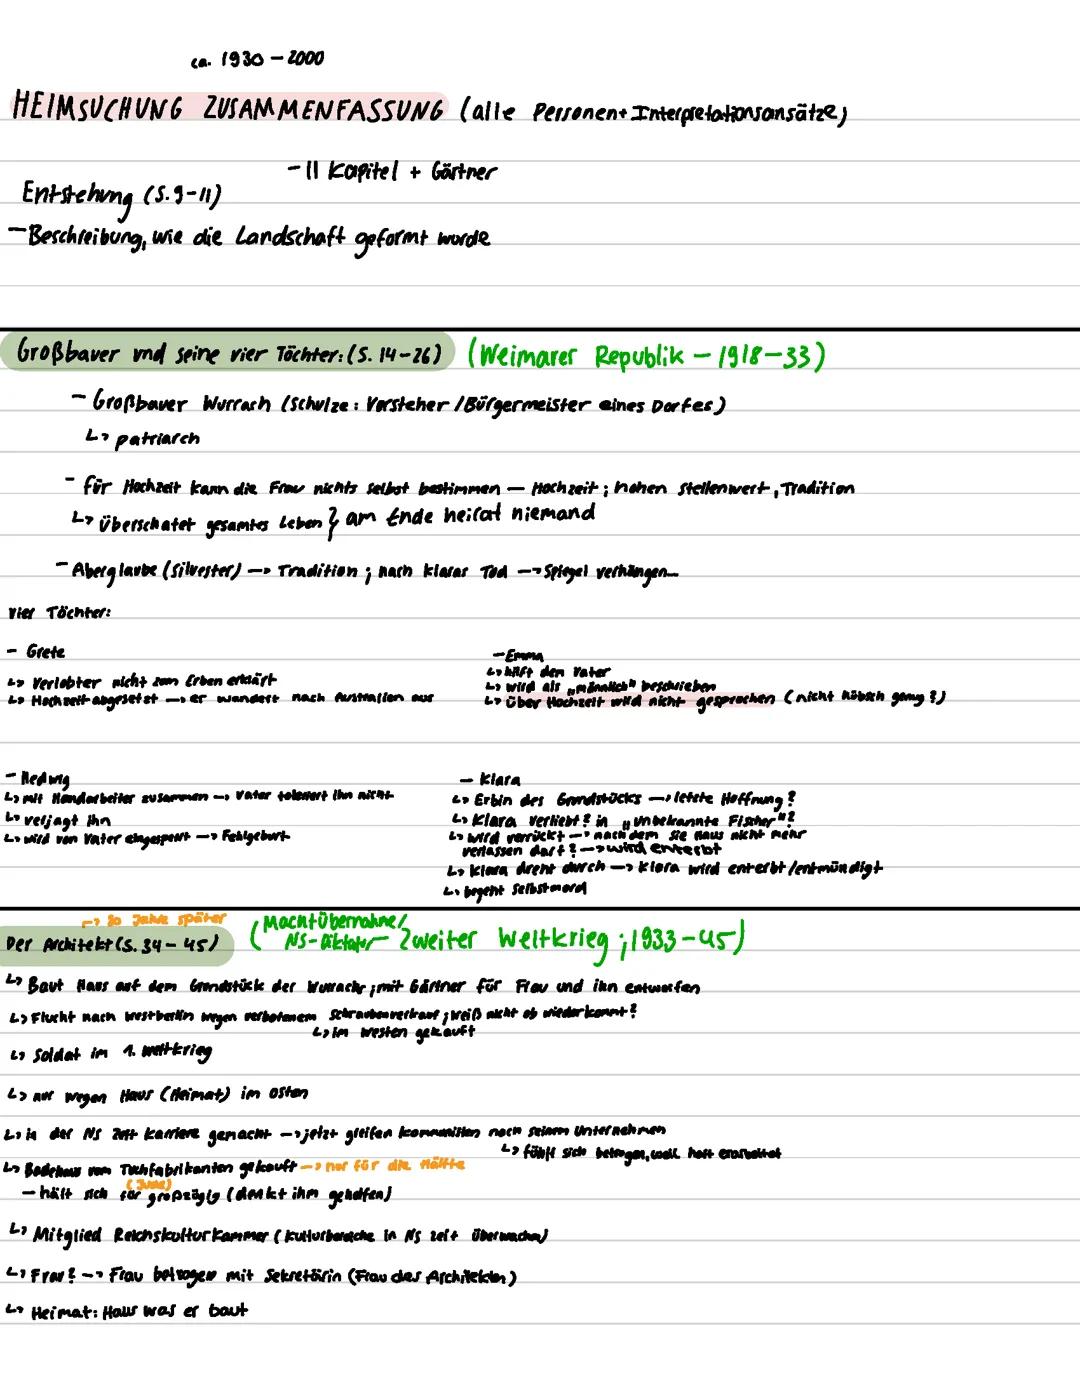 ca. 1930 – 2000
HEIMSUCHUNG ZUSAMMENFASSUNG (alle Personen + Interpretationsansätze)
– 11 Kapitel + Gärtner
Entstehung (S. 9-11)
– Beschreibung, wie die Landschaft geformt wurde
Großbauer und seine vier Töchter: (S. 14-26) (Weimarer Republik – 1918-33)
– Großbauer Wurrach (Schulze: Vorsteher / Bürgermeister eines Dorfes)
↳ patriarch
– für Hochzeit kann die Frau nichts selbst bestimmen — Hochzeit; hohen Stellenwert, Tradition
↳ überschatet gesamtes Leben } am Ende heirat niemand
– Aberglaube (Silvester) → Tradition; nach Klaras Tod → Spiegel verhängen...
vier Töchter:
– Grete
↳ Verlobter nicht zum Erben erklärt
↳ Hochzeit abgesetzt → er wandert nach Australien aus
– Emma
↳ hilft den Vater
↳ wird als „männlich" beschrieben
↳ über Hochzeit wird nicht gesprochen (nicht hübsch genug?)
– Hedwig
↳ mit Handarbeiter zusammen → Vater toleriert ihn nicht
↳ verjagt ihn
↳ wird von Vater eingesperrt → Fehlgeburt
– Klara
↳ Erbin des Grundstücks → letzte Hoffnung?
↳ Klara verliebt? in „unbekannte Fischer"?
↳ wird verrückt → nachdem sie Haus nicht mehr
verlassen darf? → wird enterbt
↳ Klara dreht durch → Klara wird enterbt/entmündigt
↳ begeht Selbstmord
→ 20 Jahre später
Der Architekt (S. 34 – 45) (Machtübernahme/
NS-Diktatur – Zweiter Weltkrieg; 1933-45)
↳ Baut Haus auf dem Grundstück der Wurrachs; mit Gärtner für Frau und ihn entworfen
↳ Flucht nach Westberlin wegen verbotenem Schraubenverkauf; weiß nicht ob wiederkommt?
↳ im Westen gekauft
↳ Soldat im 1. Weltkrieg
↳ nur wegen Haus (Heimat) im Osten
↳ in der NS Zeit Karriere gemacht → jetzt greifen Kommunisten nach seinem Unternehmen
↳ fühlt sich betrogen, weil hart erarbeitet
↳ Badehaus vom Tuchfabrikanten gekauft → nur für die Hälfte
(Jude)
– hält sich für großzügig (denkt ihm geholfen)
↳ Mitglied Reichskulturkammer (Kulturbereiche in NS Zeit überwachen)
↳ Frau? → Frau betrogen mit Sekretärin (Frau des Architekten)
↳ Heimat: Haus was er baut